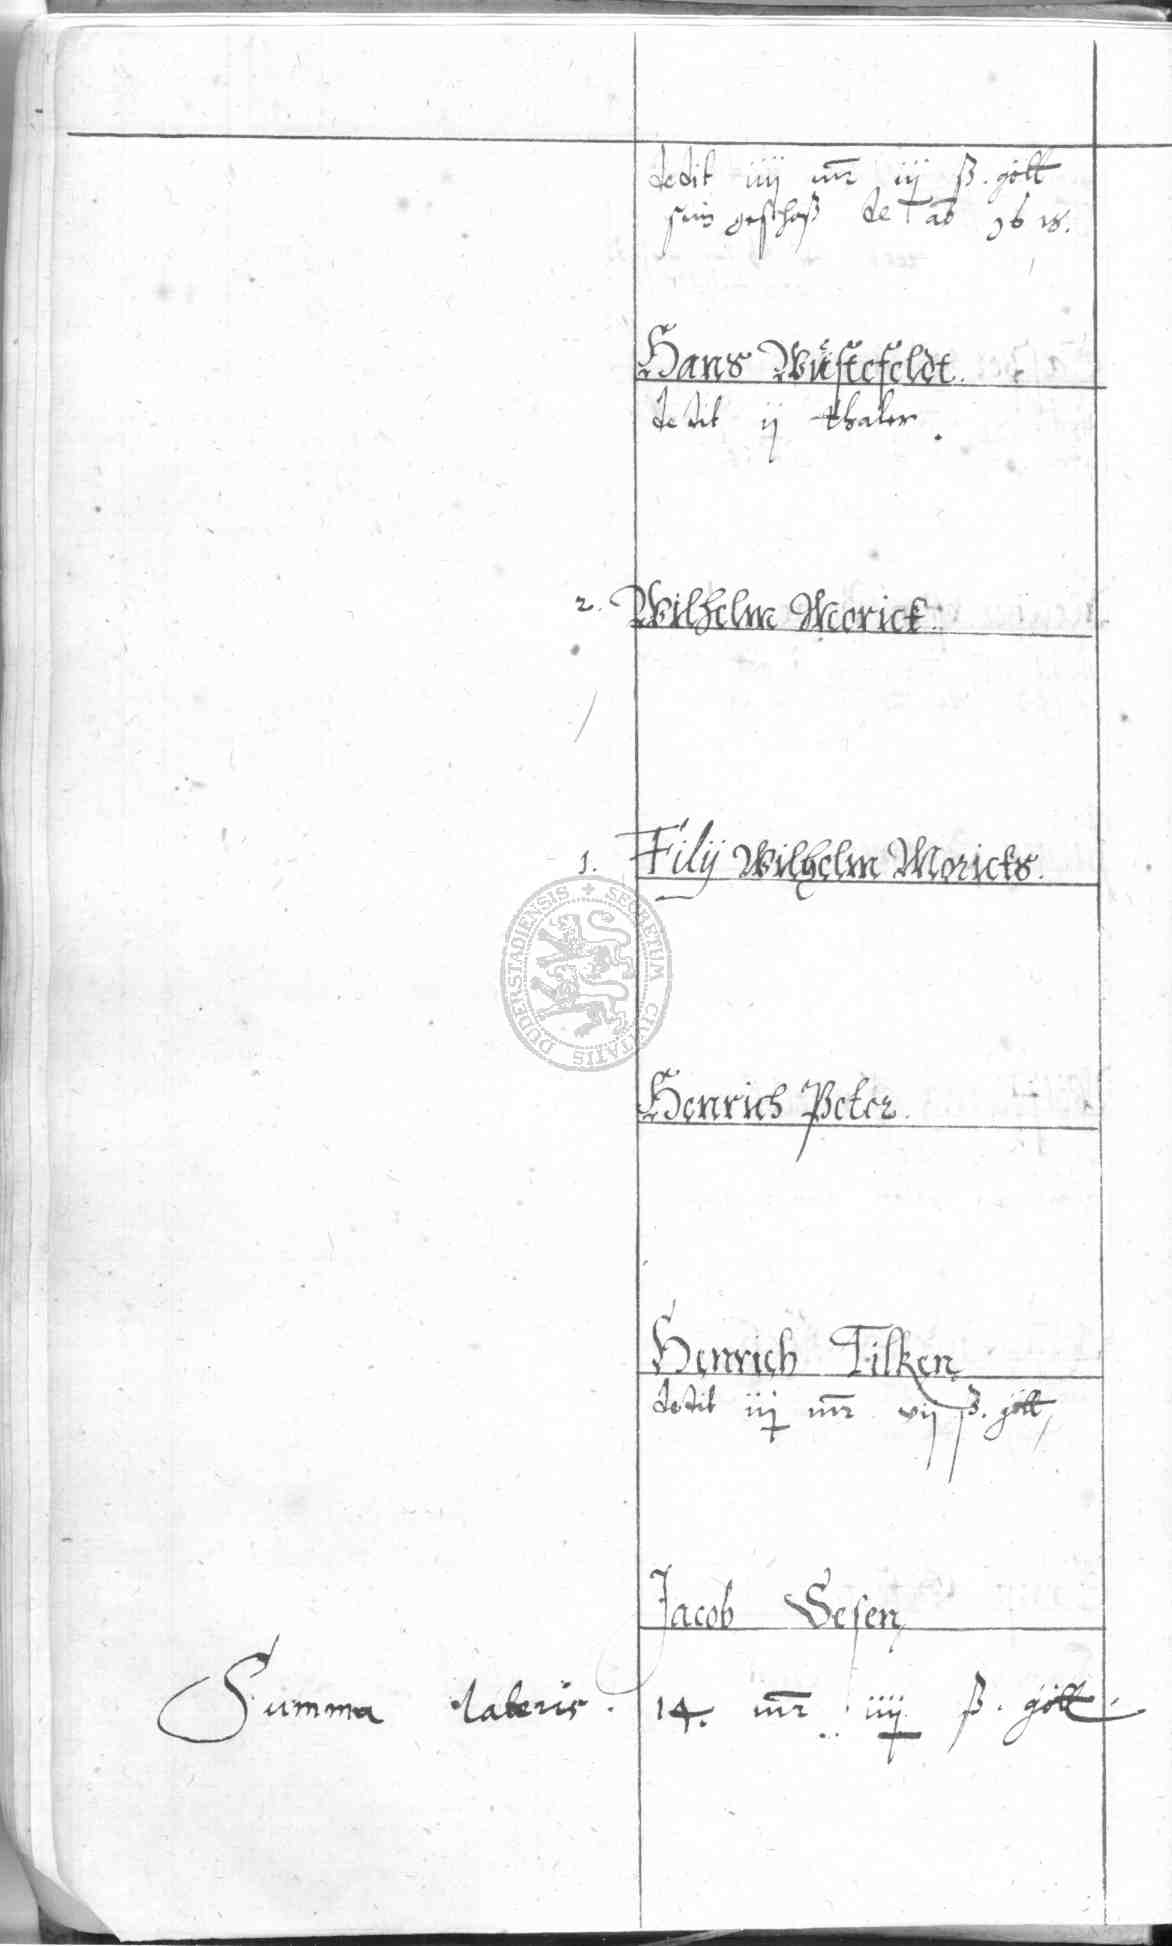 dedit iiij mr iij ß. gött
sein geschoß de ao 1618.
Hans Wüstefeldt.
dedit ij thaler.
2. Wilhelm Morick.
1. Filij Wilhelm Moricks.
SECRETUM CIVITATIS DUDERSTADIENSIS
Henrich Peter.
Henrich Tilken
dedit iij mr vij ß. gött
Jacob Sesen
Summa lateris. 14. mr iiij ß. gött.